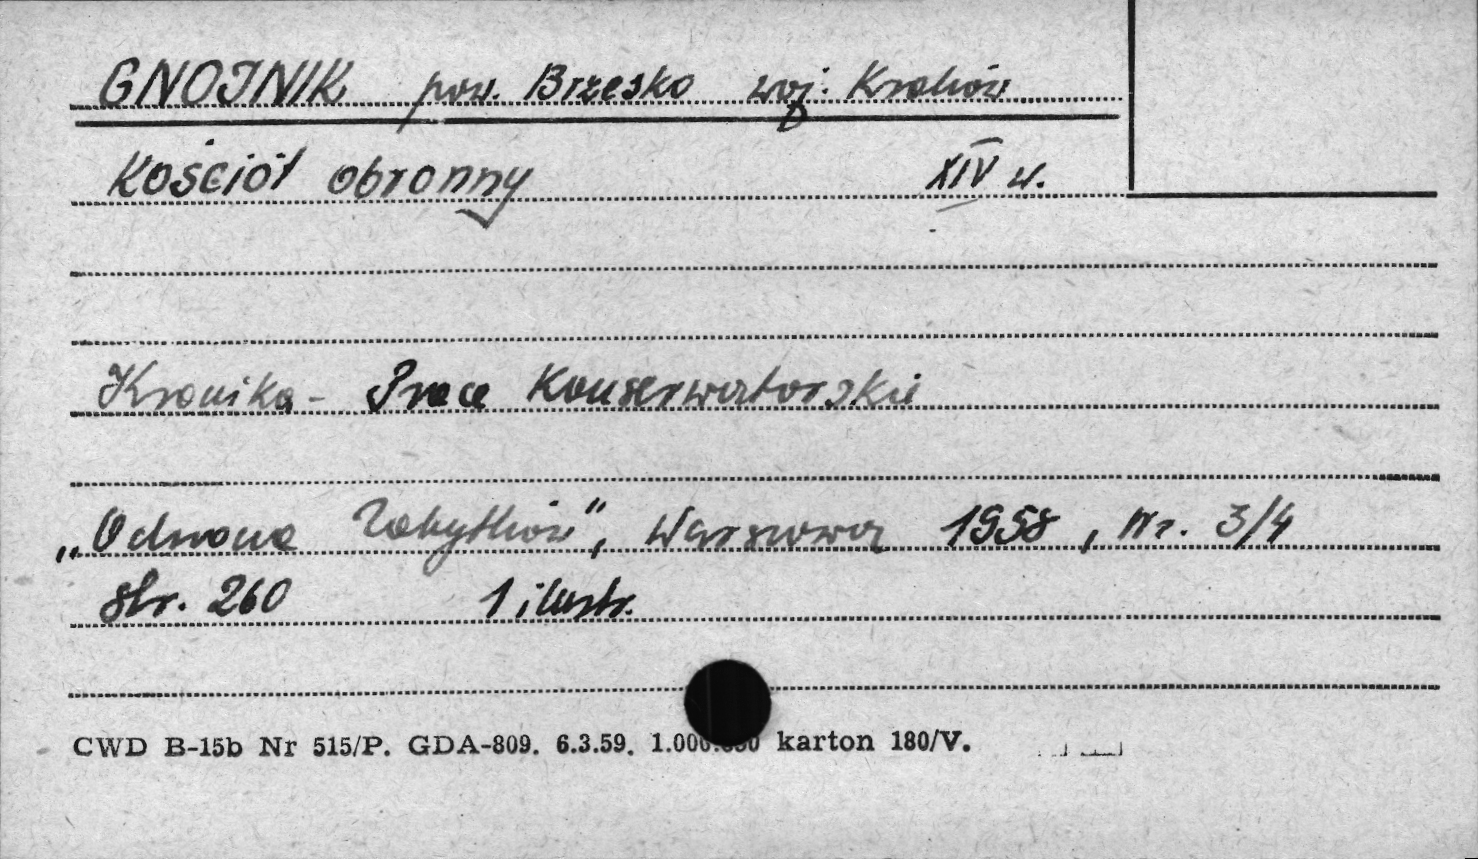 GNOJNIK pow. Brzesko woj. Kraków
Kościół obronny XIV w.
Kronika - Prace Konserwatorskie
„Ochrona Zabytków", Warszawa 1958, Nr. 3/4
str. 260 1 ilustr.
CWD B-15b Nr 515/P. GDA-809. 6.3.59. karton 180/V.